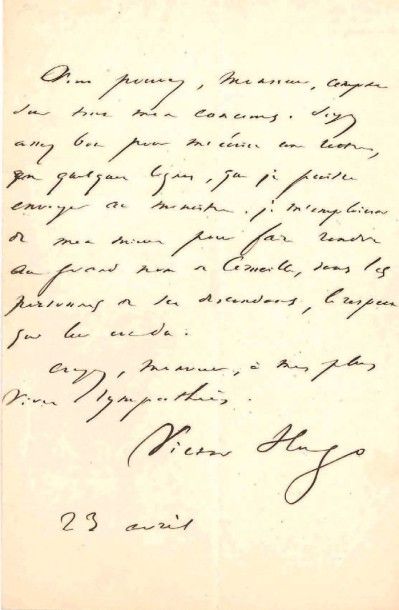 Vous pouvez, Monsieur, compter
sur tout mon concours. Soyez
assez bon pour m'écrire une lettre,
en quelques lignes, que je puisse
envoyer au ministre. Je m'emploierai
de mon mieux pour faire rendre
au grand nom de Corneille, dans les
personnes de ses descendans, le respect
qui lui est dû.
Croyez, Monsieur, à mes plus
vives sympathies.
Victor Hugo
23 avril